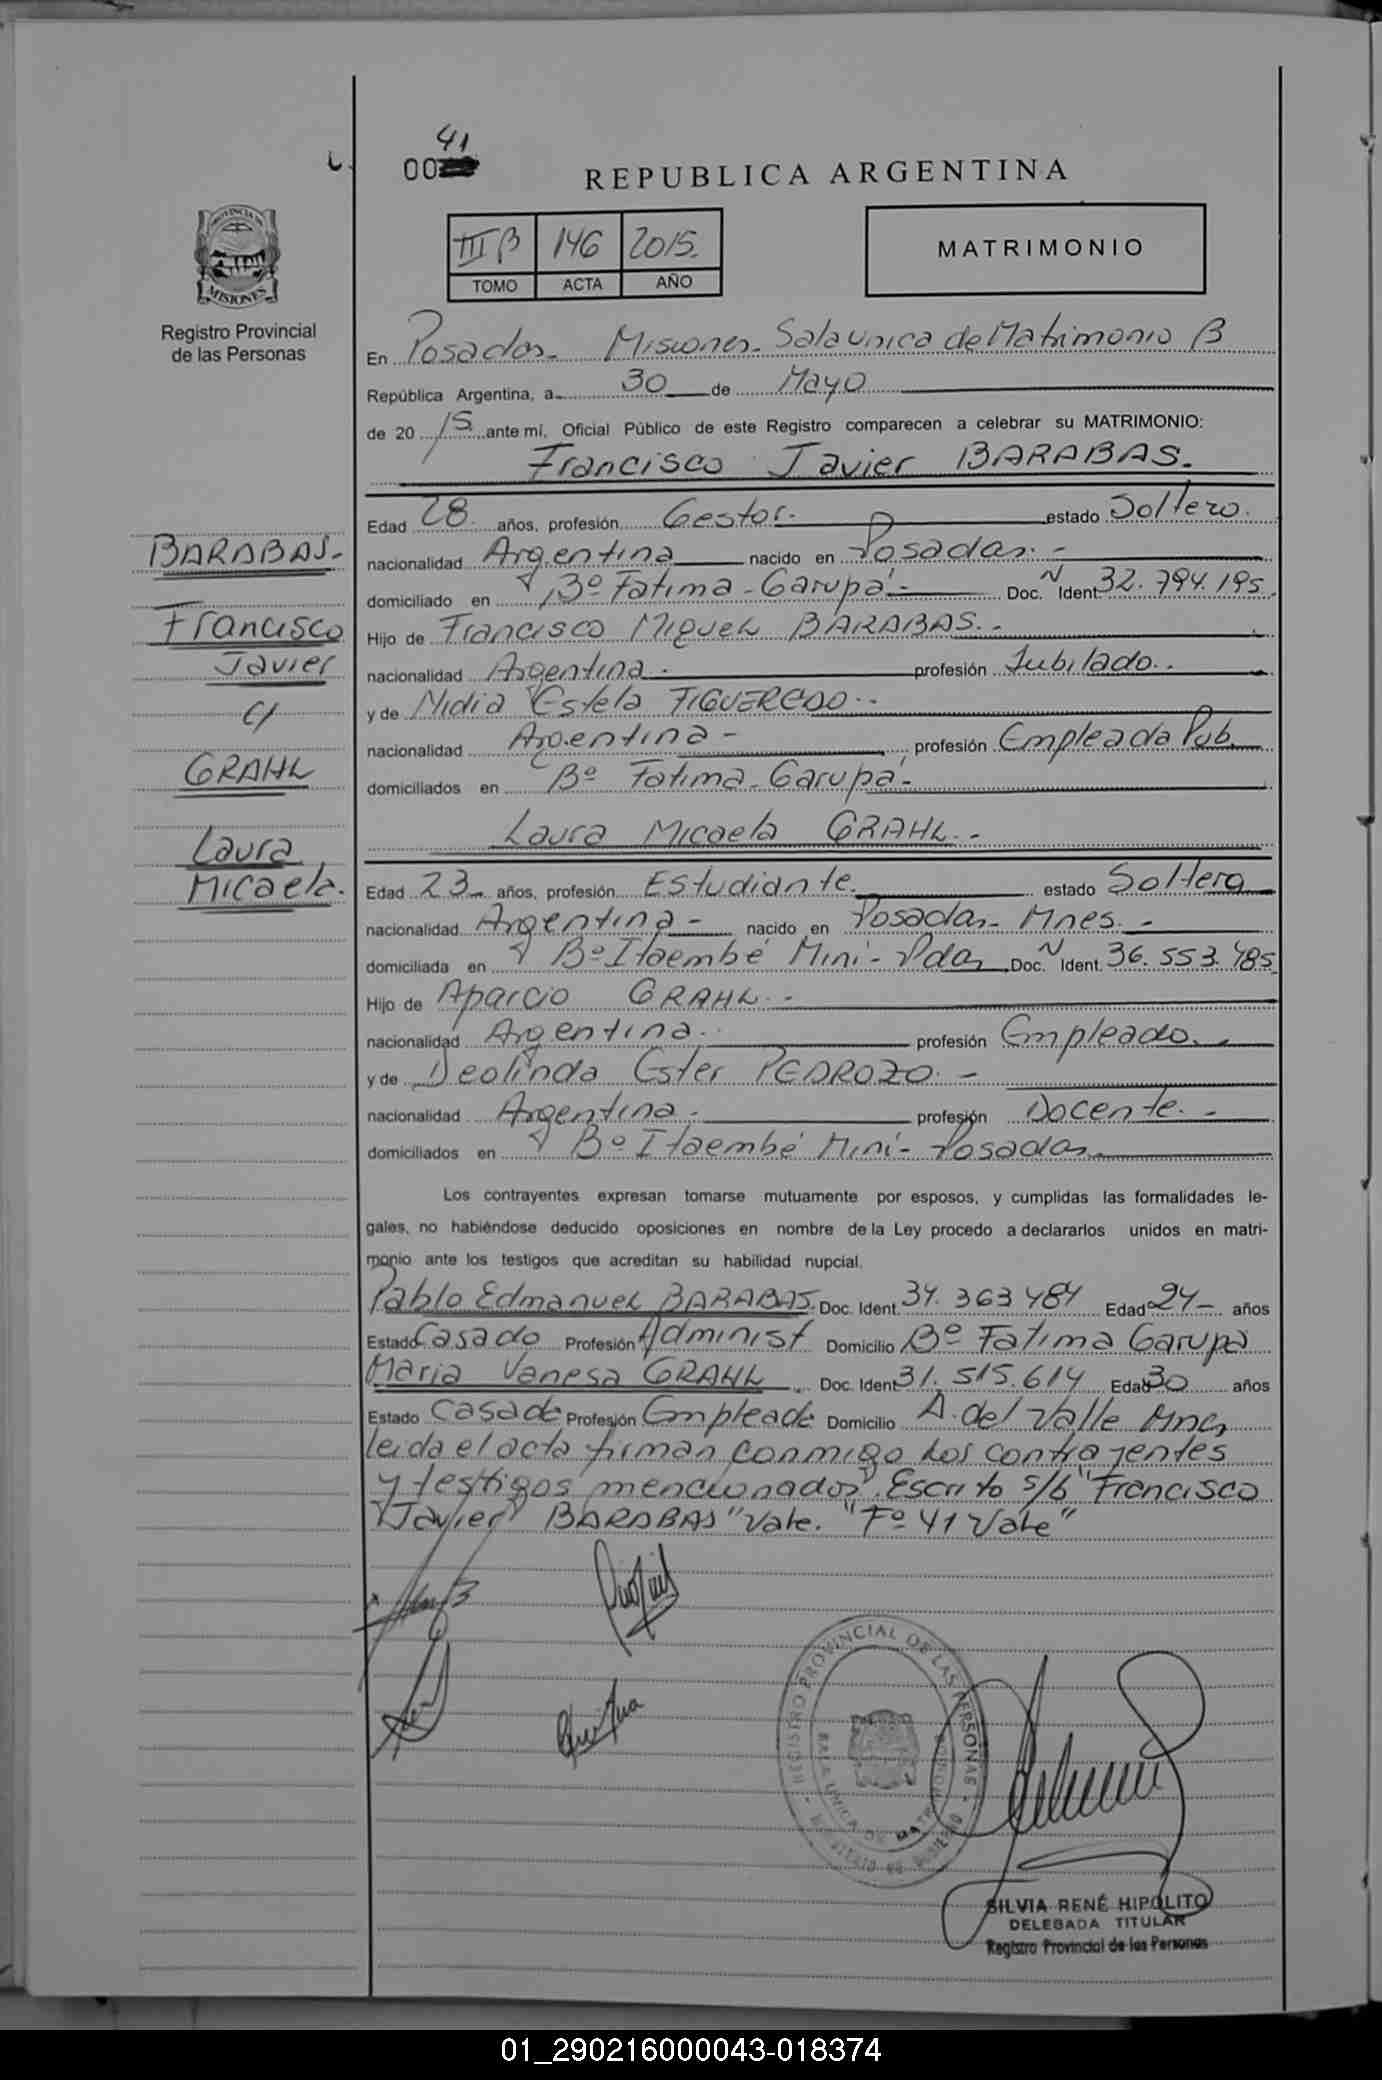 41
00
REPUBLICA ARGENTINA
PROVINCIA DE
MISIONES
Registro Provincial
de las Personas
III B 146 2015.
TOMO ACTA AÑO
MATRIMONIO
En Posadas- Misiones- Sala Unica de Matrimonio B
República Argentina, a 30 de Mayo
de 2015 ante mí, Oficial Público de este Registro comparecen a celebrar su MATRIMONIO:
Francisco Javier BARABAS.
Edad 28 años, profesión Gestor. estado Soltero.
nacionalidad Argentina nacido en Posadas.-
domiciliado en Bº Fatima-Garupá- Doc. N Ident 32.794.195.
Hijo de Francisco Miguel BARABAS.-
nacionalidad Argentina. profesión Jubilado..
y de Nidia Estela FIGUEREDO.-
nacionalidad Argentina- profesión Empleada Pub.
domiciliados en Bº Fatima-Garupá-
Laura Micaela GRAHL.-
Edad 23- años, profesión Estudiante. estado Soltera
nacionalidad Argentina- nacido en Posadas- Mnes.-
domiciliada en Bº Itaembé Mini- Pdas Doc. N Ident. 36.553.485
Hijo de Aparcio GRAHL.-
nacionalidad Argentina. profesión Empleado.-
y de Deolinda Ester PEDROZO.-
nacionalidad Argentina. profesión Docente.-
domiciliados en Bº Itaembé Mini- Posadas
BARABAS-
Francisco
Javier
c/
GRAHL
Laura
Micaela.
Los contrayentes expresan tomarse mutuamente por esposos, y cumplidas las formalidades le-
gales, no habiéndose deducido oposiciones en nombre de la Ley procedo a declararlos unidos en matri-
monio ante los testigos que acreditan su habilidad nupcial.
Pablo Edmanuel BARABAS. Doc. Ident. 34.363484 Edad 24- años
Estado Casado Profesión Administ Domicilio Bº Fatima Garupa
Maria Vanesa GRAHL Doc. Ident 31.515.614 Edad 30 años
Estado Casada Profesión Empleada Domicilio A. del Valle Mnes
leida el acta firman conmigo los contrayentes
y testigos mencionados. Escrito s/b "Francisco
Javier BARABAS" Vale. "Fº 41 Vale"
REGISTRO PROVINCIAL DE LAS PERSONAS
SALA UNICA DE MATRIMONIO
MINISTERIO DE GOBIERNO
SILVIA RENÉ HIPOLITO
DELEGADA TITULAR
Registro Provincial de las Personas
01_290216000043-018374